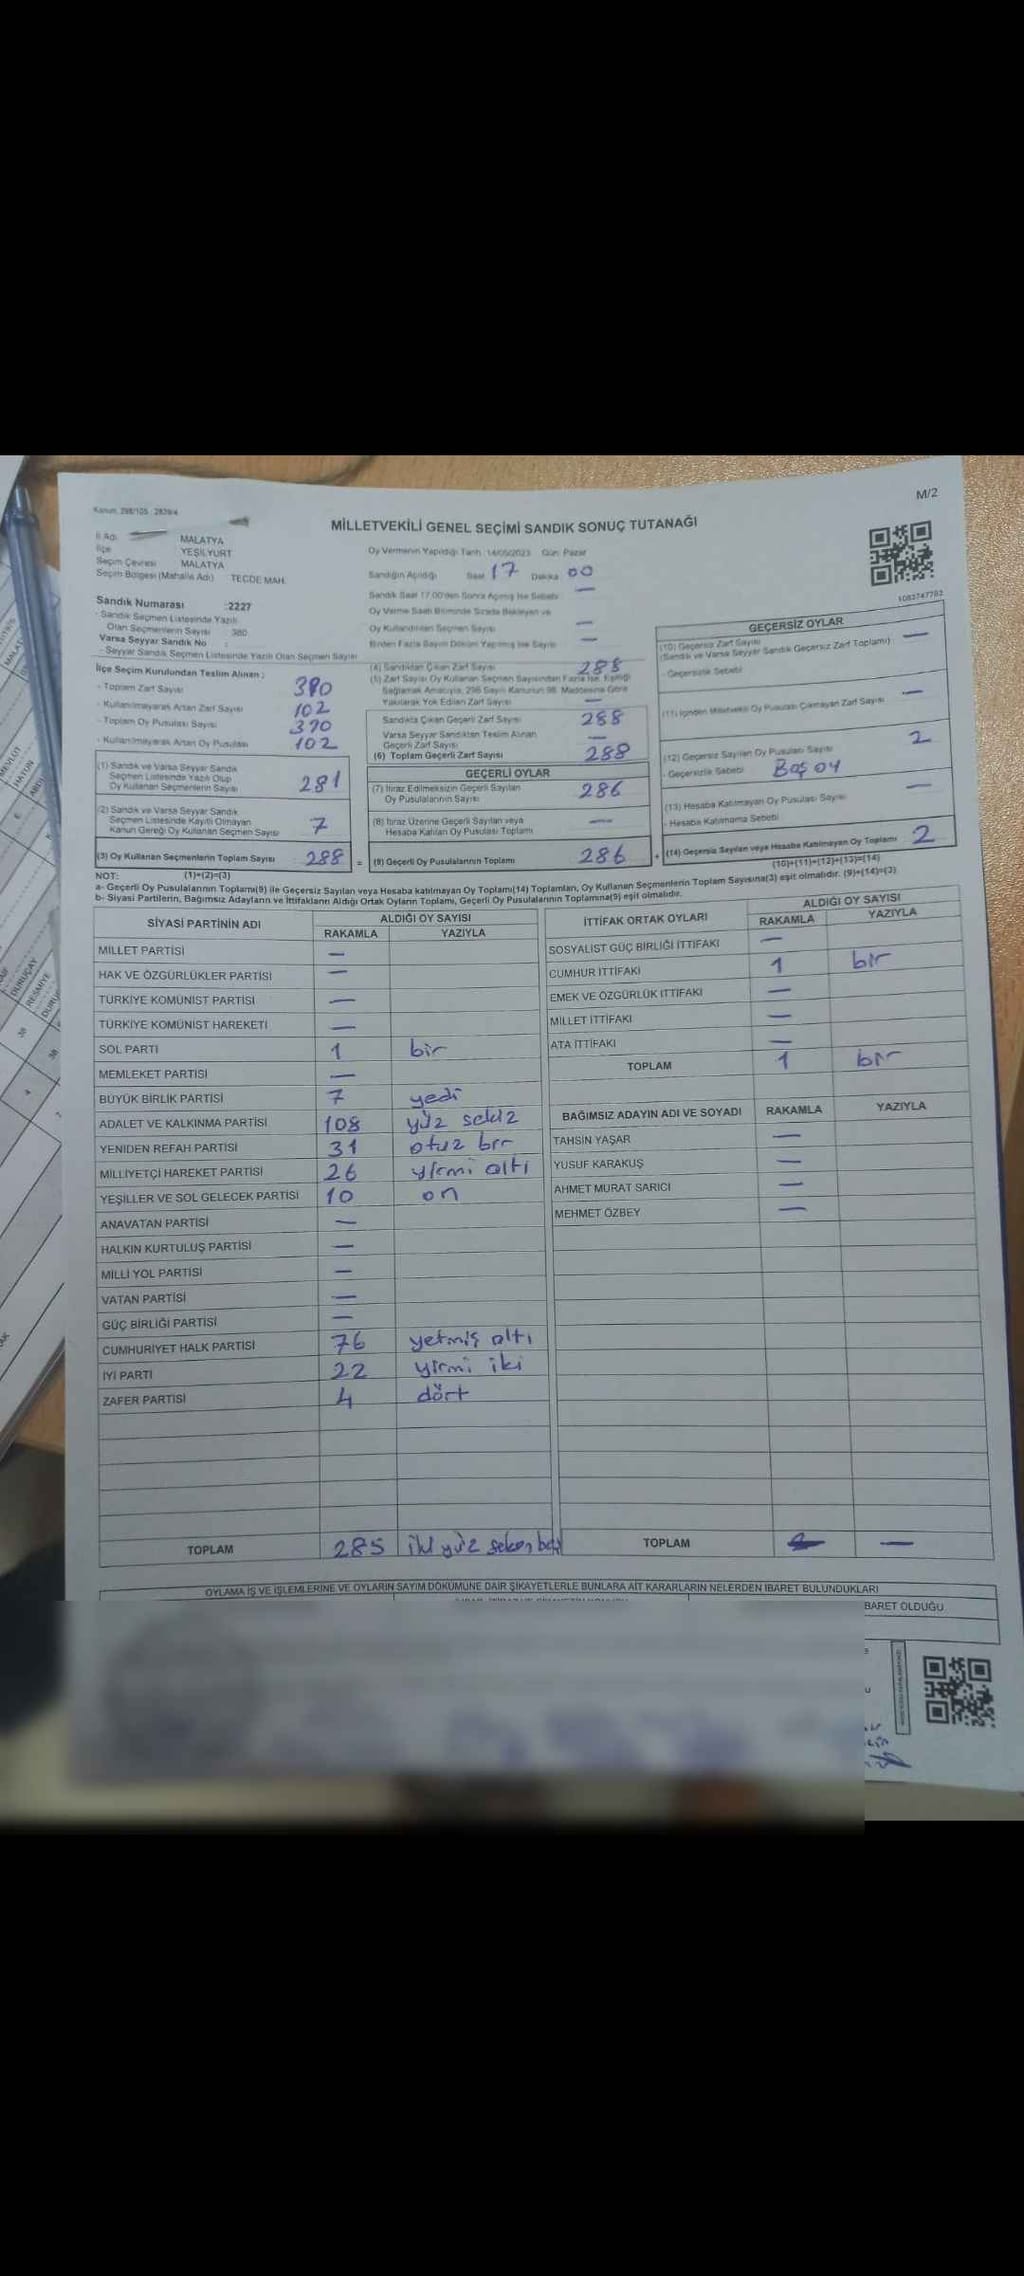 Kanun: 298/105 - 2839/4
M/2
MİLLETVEKİLİ GENEL SEÇİMİ SANDIK SONUÇ TUTANAĞI
İl Adı MALATYA
İlçe YEŞİLYURT
Seçim Çevresi MALATYA
Seçim Bölgesi (Mahalle Adı) TECDE MAH.
Sandık Numarası :2227
- Sandık Seçmen Listesinde Yazılı
Olan Seçmenlerin Sayısı : 380
Varsa Seyyar Sandık No :
- Seyyar Sandık Seçmen Listesinde Yazılı Olan Seçmen Sayısı
İlçe Seçim Kurulundan Teslim Alınan ;
- Toplam Zarf Sayısı 390
- Kullanılmayarak Artan Zarf Sayısı 102
- Toplam Oy Pusulası Sayısı 390
- Kullanılmayarak Artan Oy Pusulası 102
(1) Sandık ve Varsa Seyyar Sandık
Seçmen Listesinde Yazılı Olup
Oy Kullanan Seçmenlerin Sayısı 281
(2) Sandık ve Varsa Seyyar Sandık
Seçmen Listesinde Kayıtlı Olmayan
Kanun Gereği Oy Kullanan Seçmen Sayısı 7
(3) Oy Kullanan Seçmenlerin Toplam Sayısı 288 =
Oy Vermenin Yapıldığı Tarih : 14/05/2023 Gün: Pazar
Sandığın Açıldığı Saat 17 Dakika 00
Sandık Saat 17.00'den Sonra Açılmış İse Sebebi —
Oy Verme Saati Bitiminde Sırada Bekleyen ve
Oy Kullandırılan Seçmen Sayısı —
Birden Fazla Sayım Döküm Yapılmış İse Sayısı —
(4) Sandıktan Çıkan Zarf Sayısı 288
(5) Zarf Sayısı Oy Kullanan Seçmen Sayısından Fazla İse, Eşitliği
Sağlamak Amacıyla, 298 Sayılı Kanunun 98. Maddesine Göre
Yakılarak Yok Edilen Zarf Sayısı —
Sandıkta Çıkan Geçerli Zarf Sayısı 288
Varsa Seyyar Sandıktan Teslim Alınan
Geçerli Zarf Sayısı —
(6) Toplam Geçerli Zarf Sayısı 288
GEÇERLİ OYLAR
(7) İtiraz Edilmeksizin Geçerli Sayılan
Oy Pusulalarının Sayısı 286
(8) İtiraz Üzerine Geçerli Sayılan veya
Hesaba Katılan Oy Pusulası Toplamı —
(9) Geçerli Oy Pusulalarının Toplamı 286 +
1083747792
GEÇERSİZ OYLAR
(10) Geçersiz Zarf Sayısı
(Sandık ve Varsa Seyyar Sandık Geçersiz Zarf Toplamı) —
- Geçersizlik Sebebi
(11) İçinden Milletvekili Oy Pusulası Çıkmayan Zarf Sayısı —
(12) Geçersiz Sayılan Oy Pusulası Sayısı 2
- Geçersizlik Sebebi Boş oy
(13) Hesaba Katılmayan Oy Pusulası Sayısı —
- Hesaba Katılmama Sebebi
(14) Geçersiz Sayılan veya Hesaba Katılmayan Oy Toplamı 2
NOT: (1)+(2)=(3) (10)+(11)+(12)+(13)=(14)
a- Geçerli Oy Pusulalarının Toplamı(9) ile Geçersiz Sayılan veya Hesaba katılmayan Oy Toplamı(14) Toplamları, Oy Kullanan Seçmenlerin Toplam Sayısına(3) eşit olmalıdır. (9)+(14)=(3)
b- Siyasi Partilerin, Bağımsız Adayların ve İttifakların Aldığı Ortak Oyların Toplamı, Geçerli Oy Pusulalarının Toplamına(9) eşit olmalıdır.
SİYASİ PARTİNİN ADI ALDIĞI OY SAYISI
RAKAMLA YAZIYLA
MİLLET PARTİSİ —
HAK VE ÖZGÜRLÜKLER PARTİSİ —
TÜRKİYE KOMÜNİST PARTİSİ —
TÜRKİYE KOMÜNİST HAREKETİ —
SOL PARTİ 1 bir
MEMLEKET PARTİSİ —
BÜYÜK BİRLİK PARTİSİ 7 yedi
ADALET VE KALKINMA PARTİSİ 108 yüz sekiz
YENİDEN REFAH PARTİSİ 31 otuz bir
MİLLİYETÇİ HAREKET PARTİSİ 26 yirmi altı
YEŞİLLER VE SOL GELECEK PARTİSİ 10 on
ANAVATAN PARTİSİ —
HALKIN KURTULUŞ PARTİSİ —
MİLLİ YOL PARTİSİ —
VATAN PARTİSİ —
GÜÇ BİRLİĞİ PARTİSİ —
CUMHURİYET HALK PARTİSİ 76 yetmiş altı
İYİ PARTİ 22 yirmi iki
ZAFER PARTİSİ 4 dört
TOPLAM 285 iki yüz seksen beş
İTTİFAK ORTAK OYLARI ALDIĞI OY SAYISI
RAKAMLA YAZIYLA
SOSYALİST GÜÇ BİRLİĞİ İTTİFAKI —
CUMHUR İTTİFAKI 1 bir
EMEK VE ÖZGÜRLÜK İTTİFAKI —
MİLLET İTTİFAKI —
ATA İTTİFAKI —
TOPLAM 1 bir
BAĞIMSIZ ADAYIN ADI VE SOYADI RAKAMLA YAZIYLA
TAHSİN YAŞAR —
YUSUF KARAKUŞ —
AHMET MURAT SARICI —
MEHMET ÖZBEY —
TOPLAM — —
OYLAMA İŞ VE İŞLEMLERİNE VE OYLARIN SAYIM DÖKÜMÜNE DAİR ŞİKAYETLERLE BUNLARA AİT KARARLARIN NELERDEN İBARET BULUNDUKLARI
BARET OLDUĞU